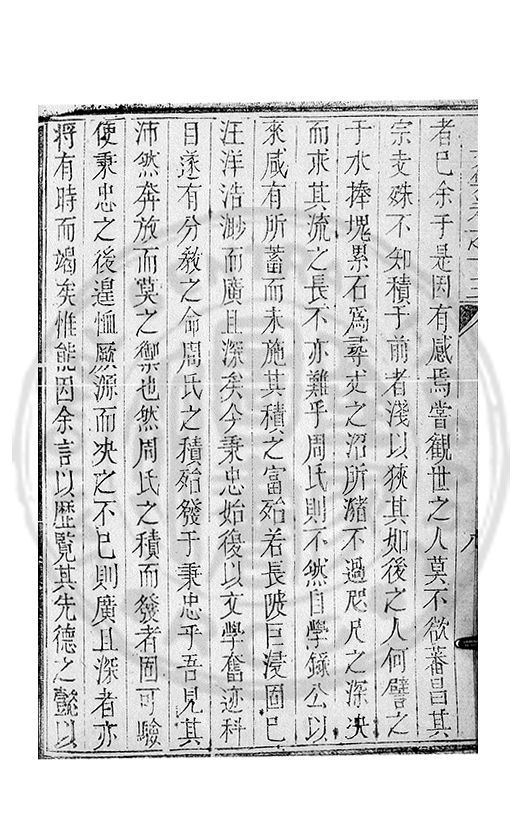 者已余于是因有感焉嘗觀世之人莫不欲蕃昌其
宗支殊不知積于前者淺以狹其如後之人何譬之
于水捧塊累石爲尋丈之沼所豬不過咫尺之深决
而求其流之長不亦難乎周氏則不然自學錄公以
來咸有所蓄而未施其積之富殆若長陂巨浸固已
汪洋浩渺而廣且深矣今秉忠始復以文學奮迹科
目遂有分教之命周氏之積殆發于秉忠乎吾見其
沛然奔放而莫之禦也然周氏之積而發者固可驗
使秉忠之後遑恤厥源而决之不已則廣且深者亦
將有時而竭矣惟能因余言以歷覽其先德之懿以